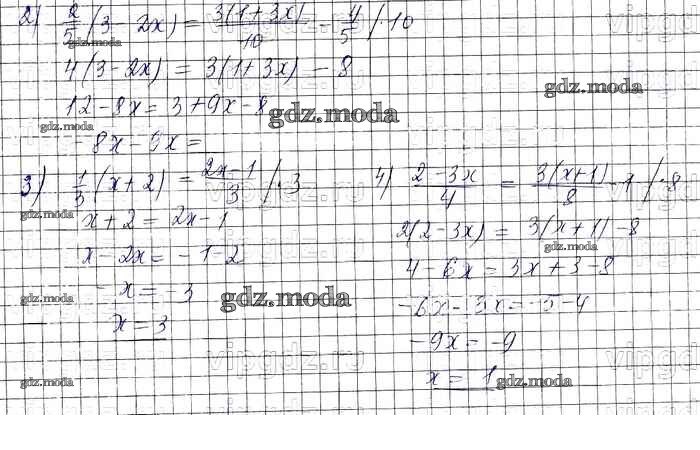 2) 2/5 (3 - 2x) = 3(1+3x)/10 - 4/5 / ·10
4(3-2x) = 3(1+3x) - 8
12-8x = 3+9x-8
-8x-9x =
3) 1/3 (x+2) = 2x-1/3 / ·3
x+2 = 2x-1
x-2x = -1-2
-x = -3
x = 3
4) 2-3x/4 = 3(x+1)/8 - 1 / ·8
2(2-3x) = 3(x+1)-8
4-6x = 3x+3-8
-6x-3x = -5-4
-9x = -9
x = 1
gdz.moda
gdz.moda
gdz.moda
gdz.moda
gdz.moda
gdz.moda
gdz.moda
gdz.moda
gdz.moda
gdz.moda
vipgdz.ru
vipgdz.ru
vipgdz.ru
vipgdz.ru
vipgdz.ru
vipgd
vipgd
vipgd
vipgd
vipgd